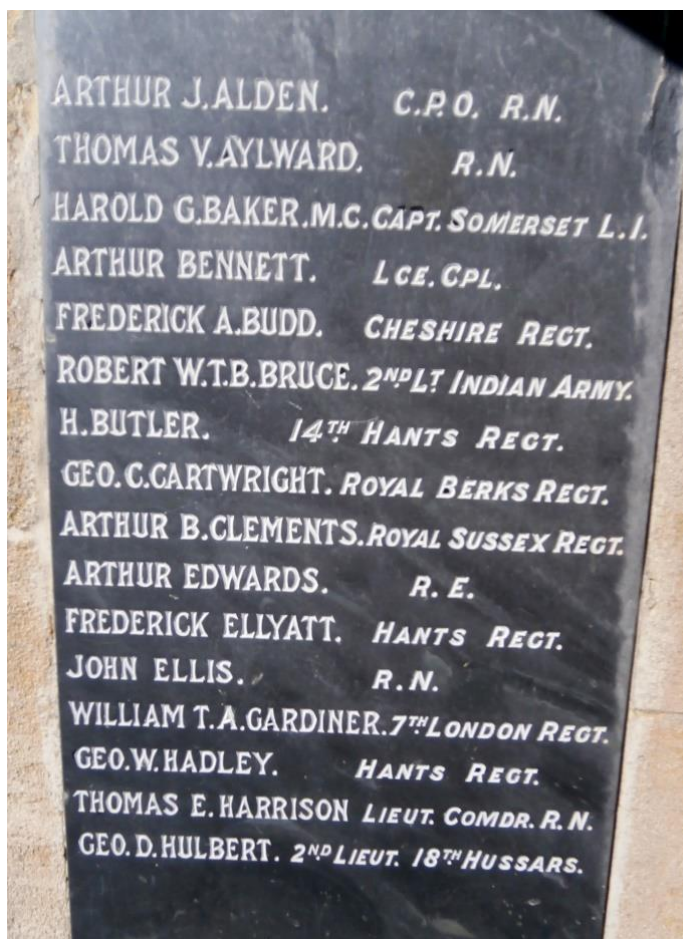 ARTHUR J. ALDEN. C.P.O. R.N.
THOMAS V. AYLWARD. R.N.
HAROLD G. BAKER. M.C. CAPT. SOMERSET L.I.
ARTHUR BENNETT. LCE. CPL.
FREDERICK A. BUDD. CHESHIRE REGT.
ROBERT W.T.B. BRUCE. 2ND LT INDIAN ARMY.
H. BUTLER. 14TH HANTS REGT.
GEO. C. CARTWRIGHT. ROYAL BERKS REGT.
ARTHUR B. CLEMENTS. ROYAL SUSSEX REGT.
ARTHUR EDWARDS. R.E.
FREDERICK ELLYATT. HANTS REGT.
JOHN ELLIS. R.N.
WILLIAM T.A. GARDINER. 7TH LONDON REGT.
GEO. W. HADLEY. HANTS REGT.
THOMAS E. HARRISON LIEUT. COMDR. R.N.
GEO. D. HULBERT. 2ND LIEUT. 18TH HUSSARS.